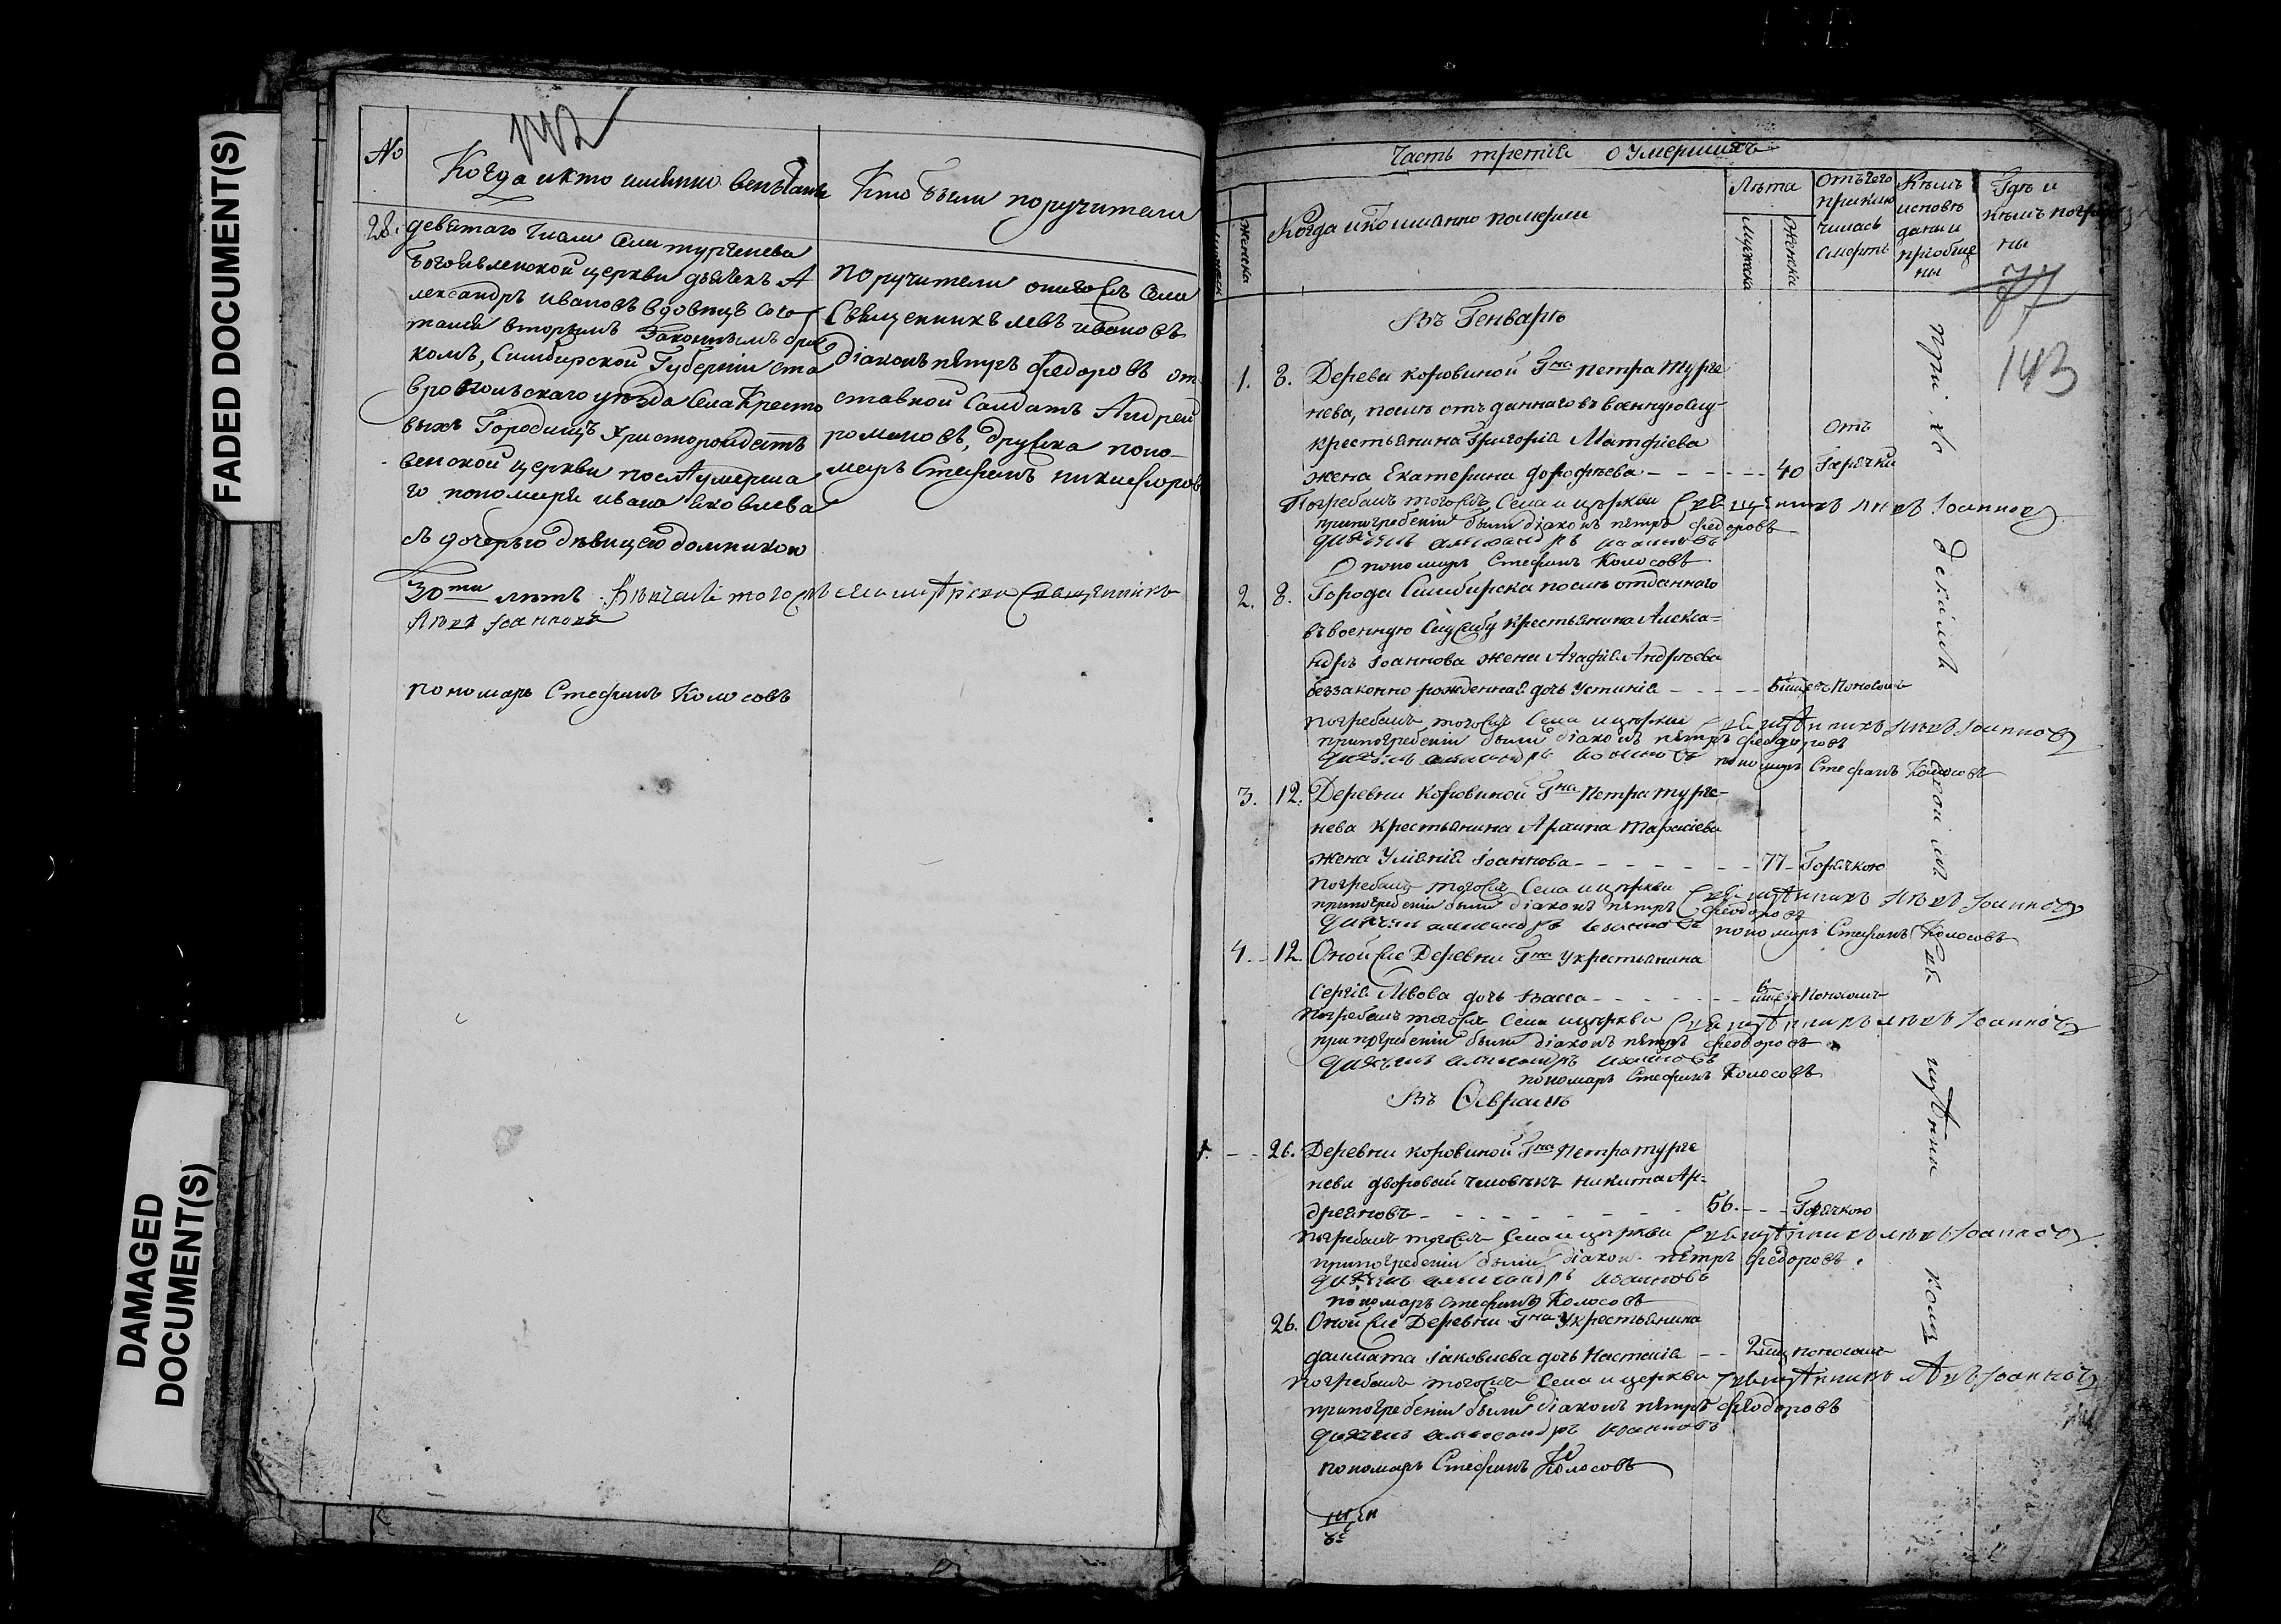 FADED DOCUMENT(S)
DAMAGED
DOCUMENT(S)
142
№
Когда и кто имянно венчаны
Кто были поручители
28.
девятаго числа села тургенева
богоявленской церкви дьячекъ А
лександръ ивановъ вдовецъ соче
тался вторымъ законнымъ бра
комъ, Симбирской Губернiи ста
вропольскаго уезда Села Кресто
выхъ Городищъ христорождест
венской церкви после умерша
го пономаря ивана яковлева
съ дочерью девицею домникою
30ти летъ. Венчалъ тогожъ села священникъ
Левъ Iоанновъ
пономарь Стефанъ Колосовъ
поручители онагожъ села
Священникъ левъ ивановъ
дiаконъ петръ федоровъ от
ставной Салдатъ Андрей
романовъ, дружка поно-
марь Стефанъ никифоровъ
Часть третiя о Умершихъ
женска
Когда и кто имянно померли
Лета
мужска
женска
Отъ чего
приклю
чилась
смерть
Кемъ
исповѣ
даны и
прiобще
ны
Где и
кемъ погребе
ны
77
143
Въ Генваре
1. 8. Деревни коровиной Гна петра Турге
нева, после отъданнаго въ военную слу-
крестьянина Григорiя Матфiева
жена Екатерина дорофѣева - - - - 40
отъ
Горячки
Погребалъ тогожъ Села и церкви Священникъ левъ Iоанновъ
при погребенiи были дiаконъ петръ федоровъ
дьячекъ александръ ивановъ
пономарь Стефанъ Колосовъ
2. 8. Города Симбирска после отданнаго
въ военную Службу крестьянина Алекса=
ндра Iоаннова жены Агафiи Андреева
беззаконно рожденная дочь Устинiя - - - - поносомъ
погребалъ тогожъ Села и церкви Священникъ левъ Iоанновъ
при погребенiи были дiаконъ петръ феодоровъ
дьячекъ александръ ивановъ пономарь Стефанъ Колосовъ
3. 12. Деревни коровиной Гна петра турге-
нева крестьянина Архипа Тарасiева
жена Улiянiя Iоаннова - - - - 77 - Горячкою
погребалъ тогожъ Села и церкви Священникъ левъ Iоанновъ
при погребенiи были дiаконъ петръ феодоровъ
дьячекъ александръ ивановъ пономарь Стефанъ Колосовъ
4. - 12. Оной же Деревни Гна у крестьянина
Сергiя Львова дочь васса - - - - поносомъ
погребалъ тогожъ Села и церкви Священникъ левъ Iоанновъ
при погребенiи были дiаконъ петръ феодоровъ
дьячекъ александръ ивановъ
пономарь Стефанъ Колосовъ
Въ Февралѣ
1. - - 26. Деревни коровиной Гна петра турге
нева дворовой человѣкъ никита Ан-
дреяновъ - - - - 56. - - - Горячкою
погребалъ тогожъ Села и церкви Священникъ левъ Iоанновъ
при погребенiи были дiаконъ петръ федоровъ
дьячекъ александръ ивановъ
пономарь Стефанъ Колосовъ
26. Оной же Деревни Гна у крестьянина
далмата Iаковлева дочь Настасiя - - поносомъ
погребалъ тогожъ Села и церкви Священникъ Левъ Iоанновъ
при погребенiи были дiаконъ петръ феодоровъ
дьячекъ александръ ивановъ
пономарь Стефанъ Колосовъ